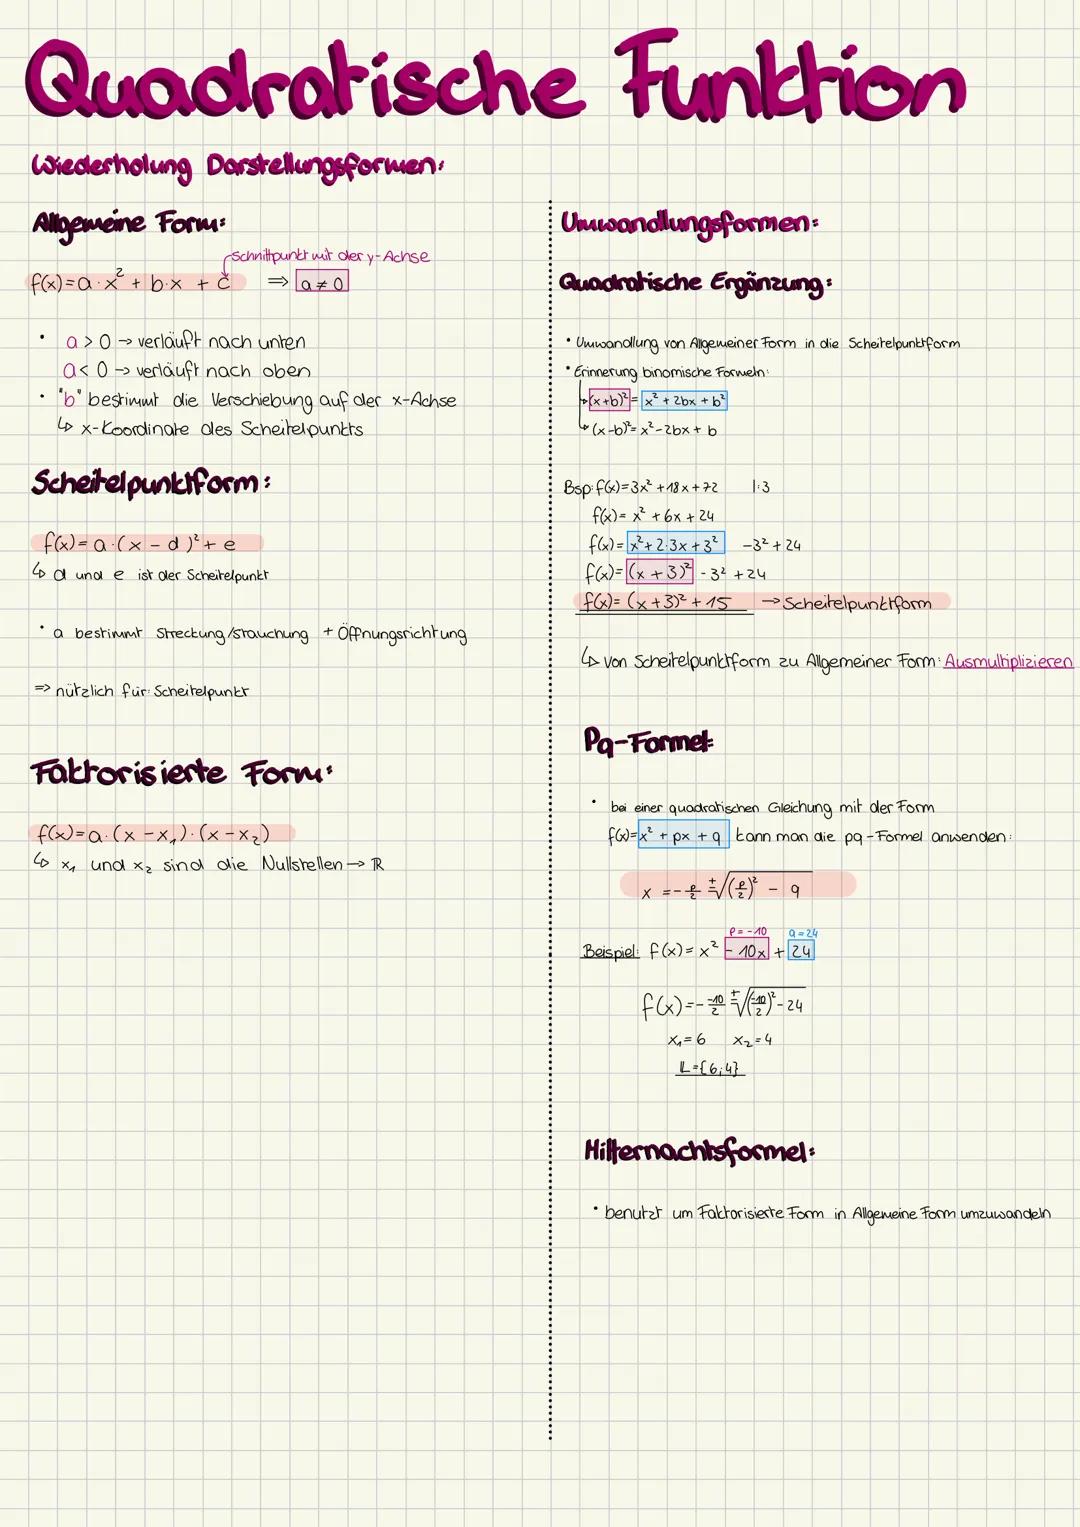 Quadratische Funktion
Wiederholung Darstellungsformen:
Allgemeine Form:
Schnittpunkt mit der y-Achse
f(x)=a·x² + b·x + c ⇒ a ≠ 0
• a > 0 → verläuft nach unten
a < 0 → verläuft nach oben
• "b" bestimmt die Verschiebung auf der x-Achse
↳ x-Koordinate des Scheitelpunkts
Scheitelpunktform:
f(x)= a·(x - d)² + e
↳ d und e ist der Scheitelpunkt
• a bestimmt Streckung/Stauchung + Öffnungsrichtung
⇒ nützlich für: Scheitelpunkt
Faktorisierte Form:
f(x)=a·(x - x₁)·(x - x₂)
↳ x₁ und x₂ sind die Nullstellen → ℝ
Umwandlungsformen:
Quadratische Ergänzung:
• Umwandlung von Allgemeiner Form in die Scheitelpunktform
• Erinnerung binomische Formeln:
↳ (x+b)² = x² + 2bx + b²
↳ (x-b)² = x² - 2bx + b
Bsp: f(x)= 3x² + 18x + 72 |:3
f(x)= x² + 6x + 24
f(x)= x² + 2·3x + 3² - 3² + 24
f(x)= (x + 3)² - 3² + 24
f(x)= (x + 3)² + 15 → Scheitelpunktform
↳ von Scheitelpunktform zu Allgemeiner Form: Ausmultiplizieren
Pq-Formel:
• bei einer quadratischen Gleichung mit der Form
f(x)= x² + px + q kann man die pq-Formel anwenden:
x = -p/2 ± √((p/2)² - q)
p = -10 q = 24
Beispiel: f(x)= x² - 10x + 24
f(x)= - -10/2 ± √((-10/2)² - 24)
x₁ = 6 x₂ = 4
𝕃 = {6;4}
Mitternachtsformel:
• benutzt um Faktorisierte Form in Allgemeine Form umzuwandeln